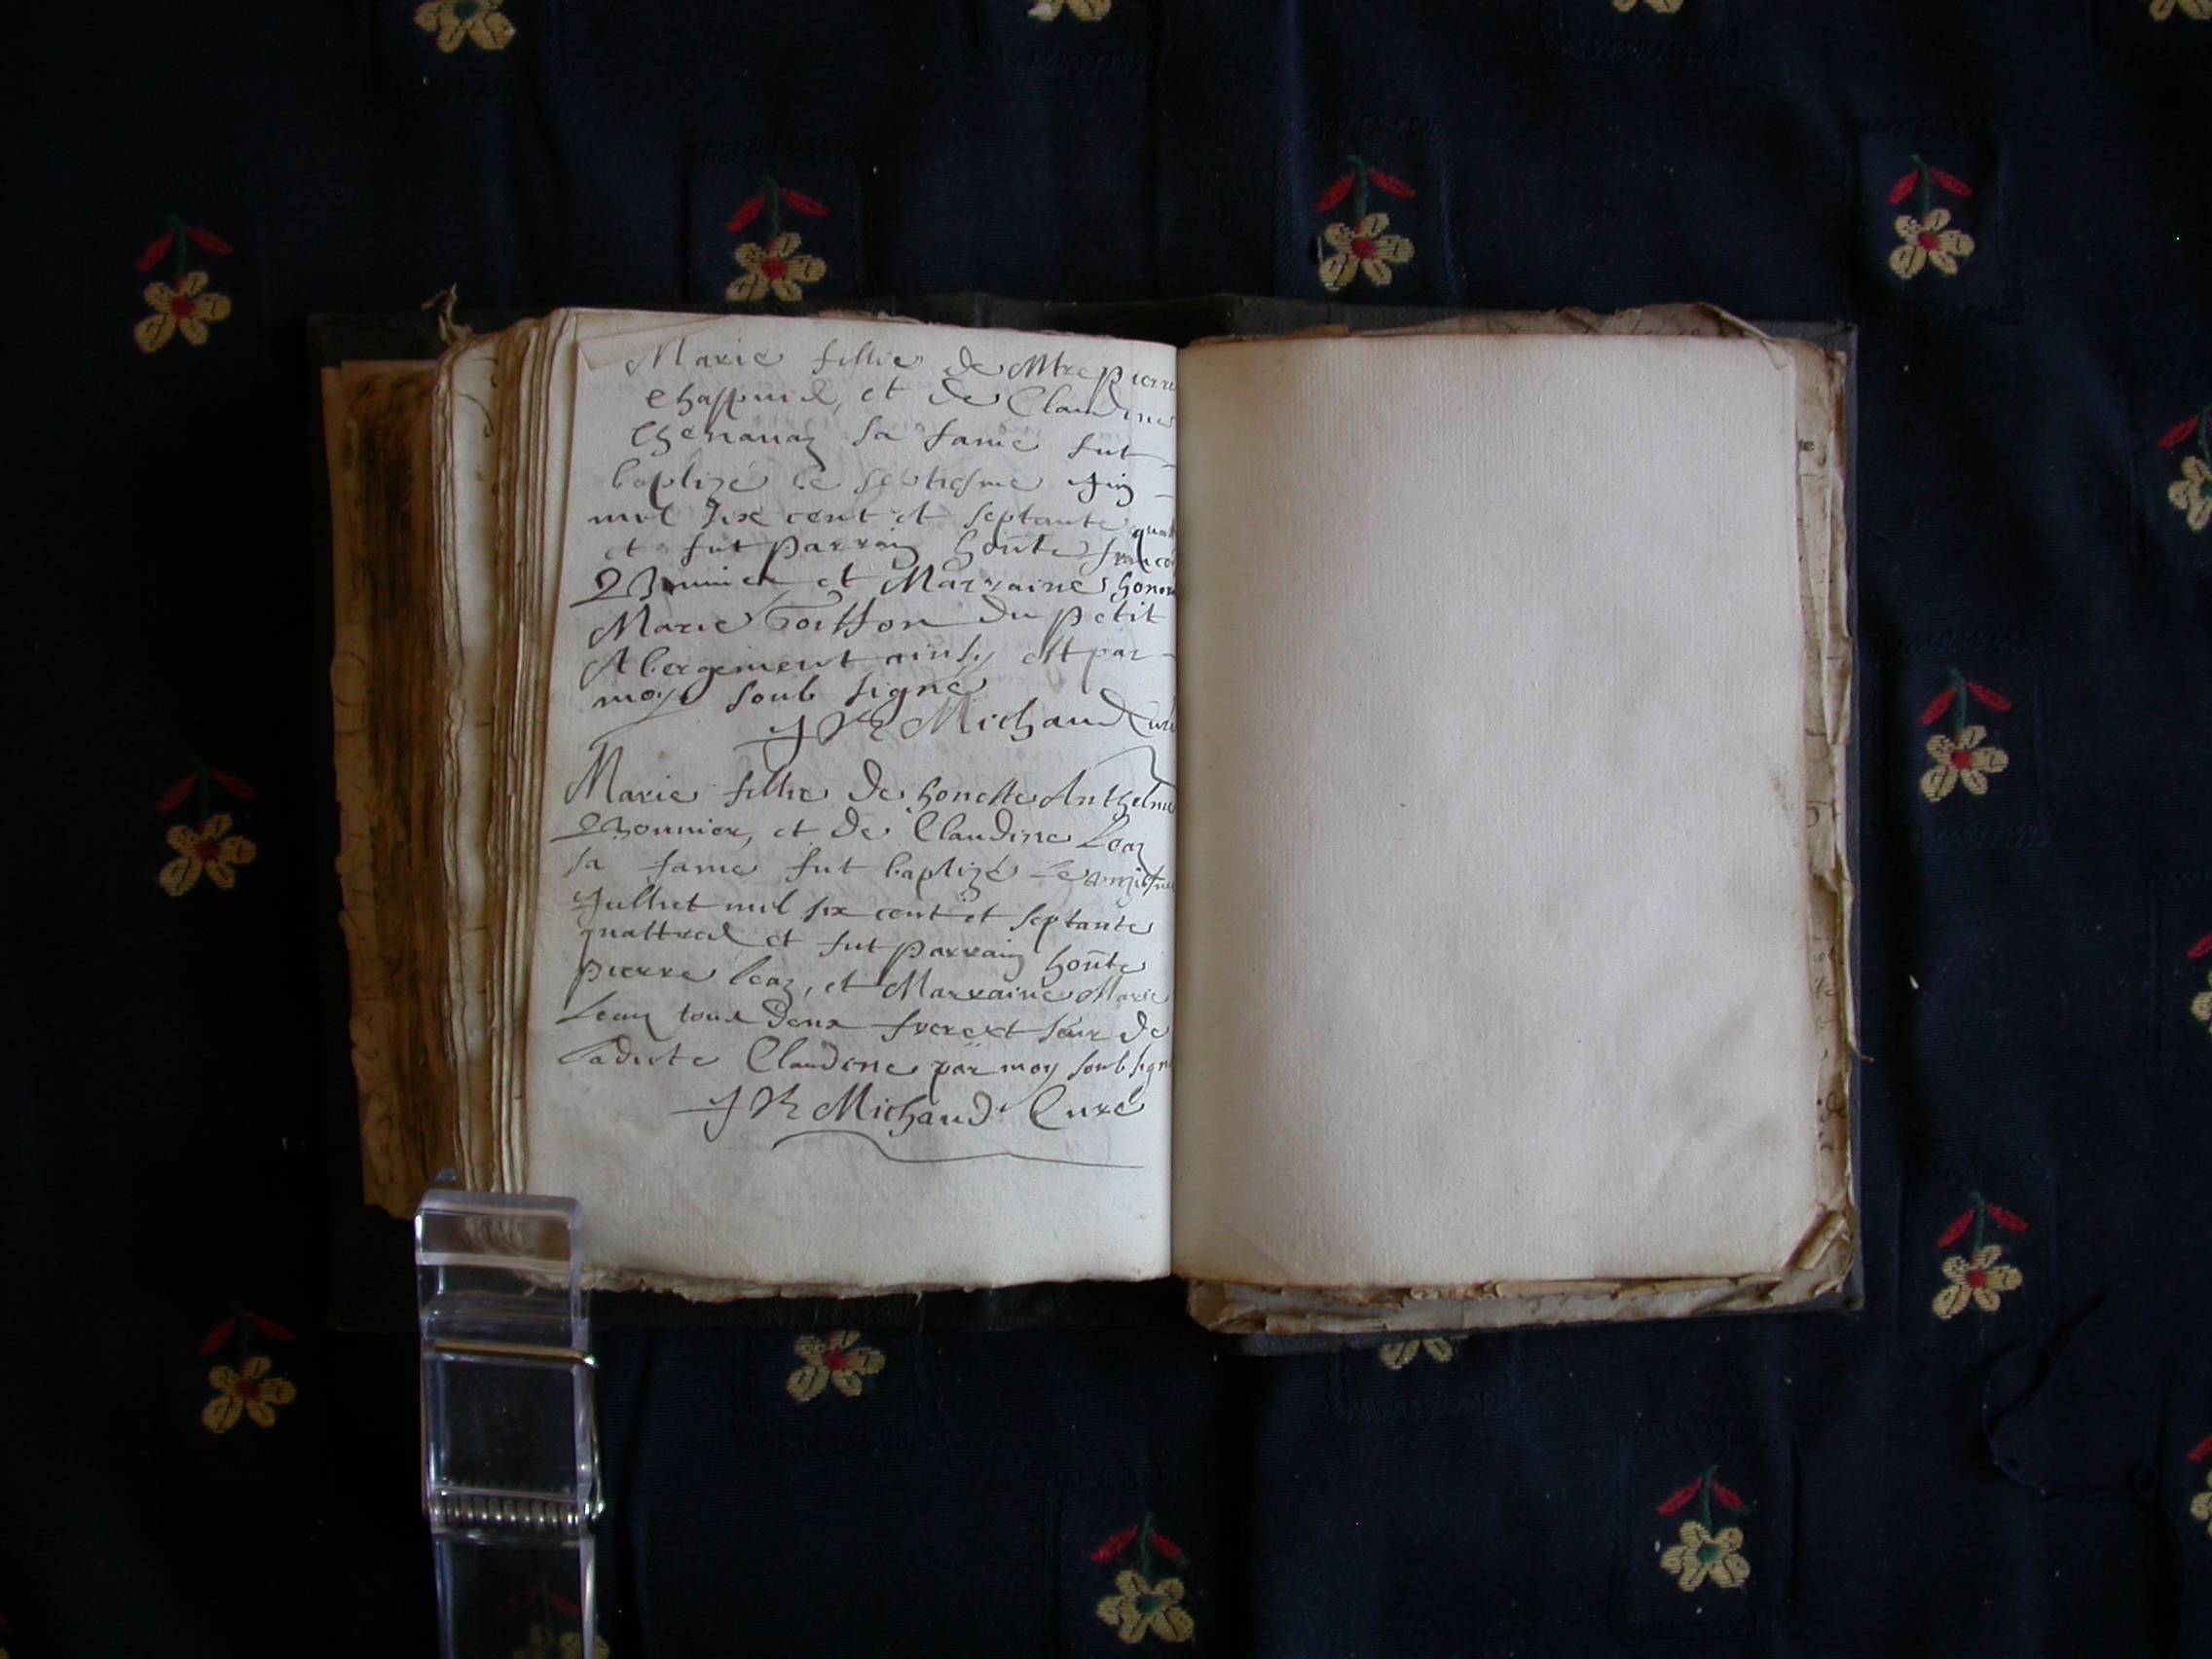 Marie fillie de Mtre pierre
et de Claudine
Chenauaz sa fame fut
baptizé le septiesme Juin
mil six cent et septante quatt
et fut parrain honte francoi
Bonnier et Marraine honor
Marie Goiffon du petit
Abergement ainsy est par
moy soub signé
Michaud Curé
Marie fillie de honeste Anthelme
Bonnier, et de Claudine Leaz
sa fame fut baptizé le
Julliet mil six cent et septante
quattre et fut parrain honte
pierre leaz, et Marraine Marie
Leaz tous deux frere et seur de
ladicte Claudine par moy soub sign
Michaud Curé